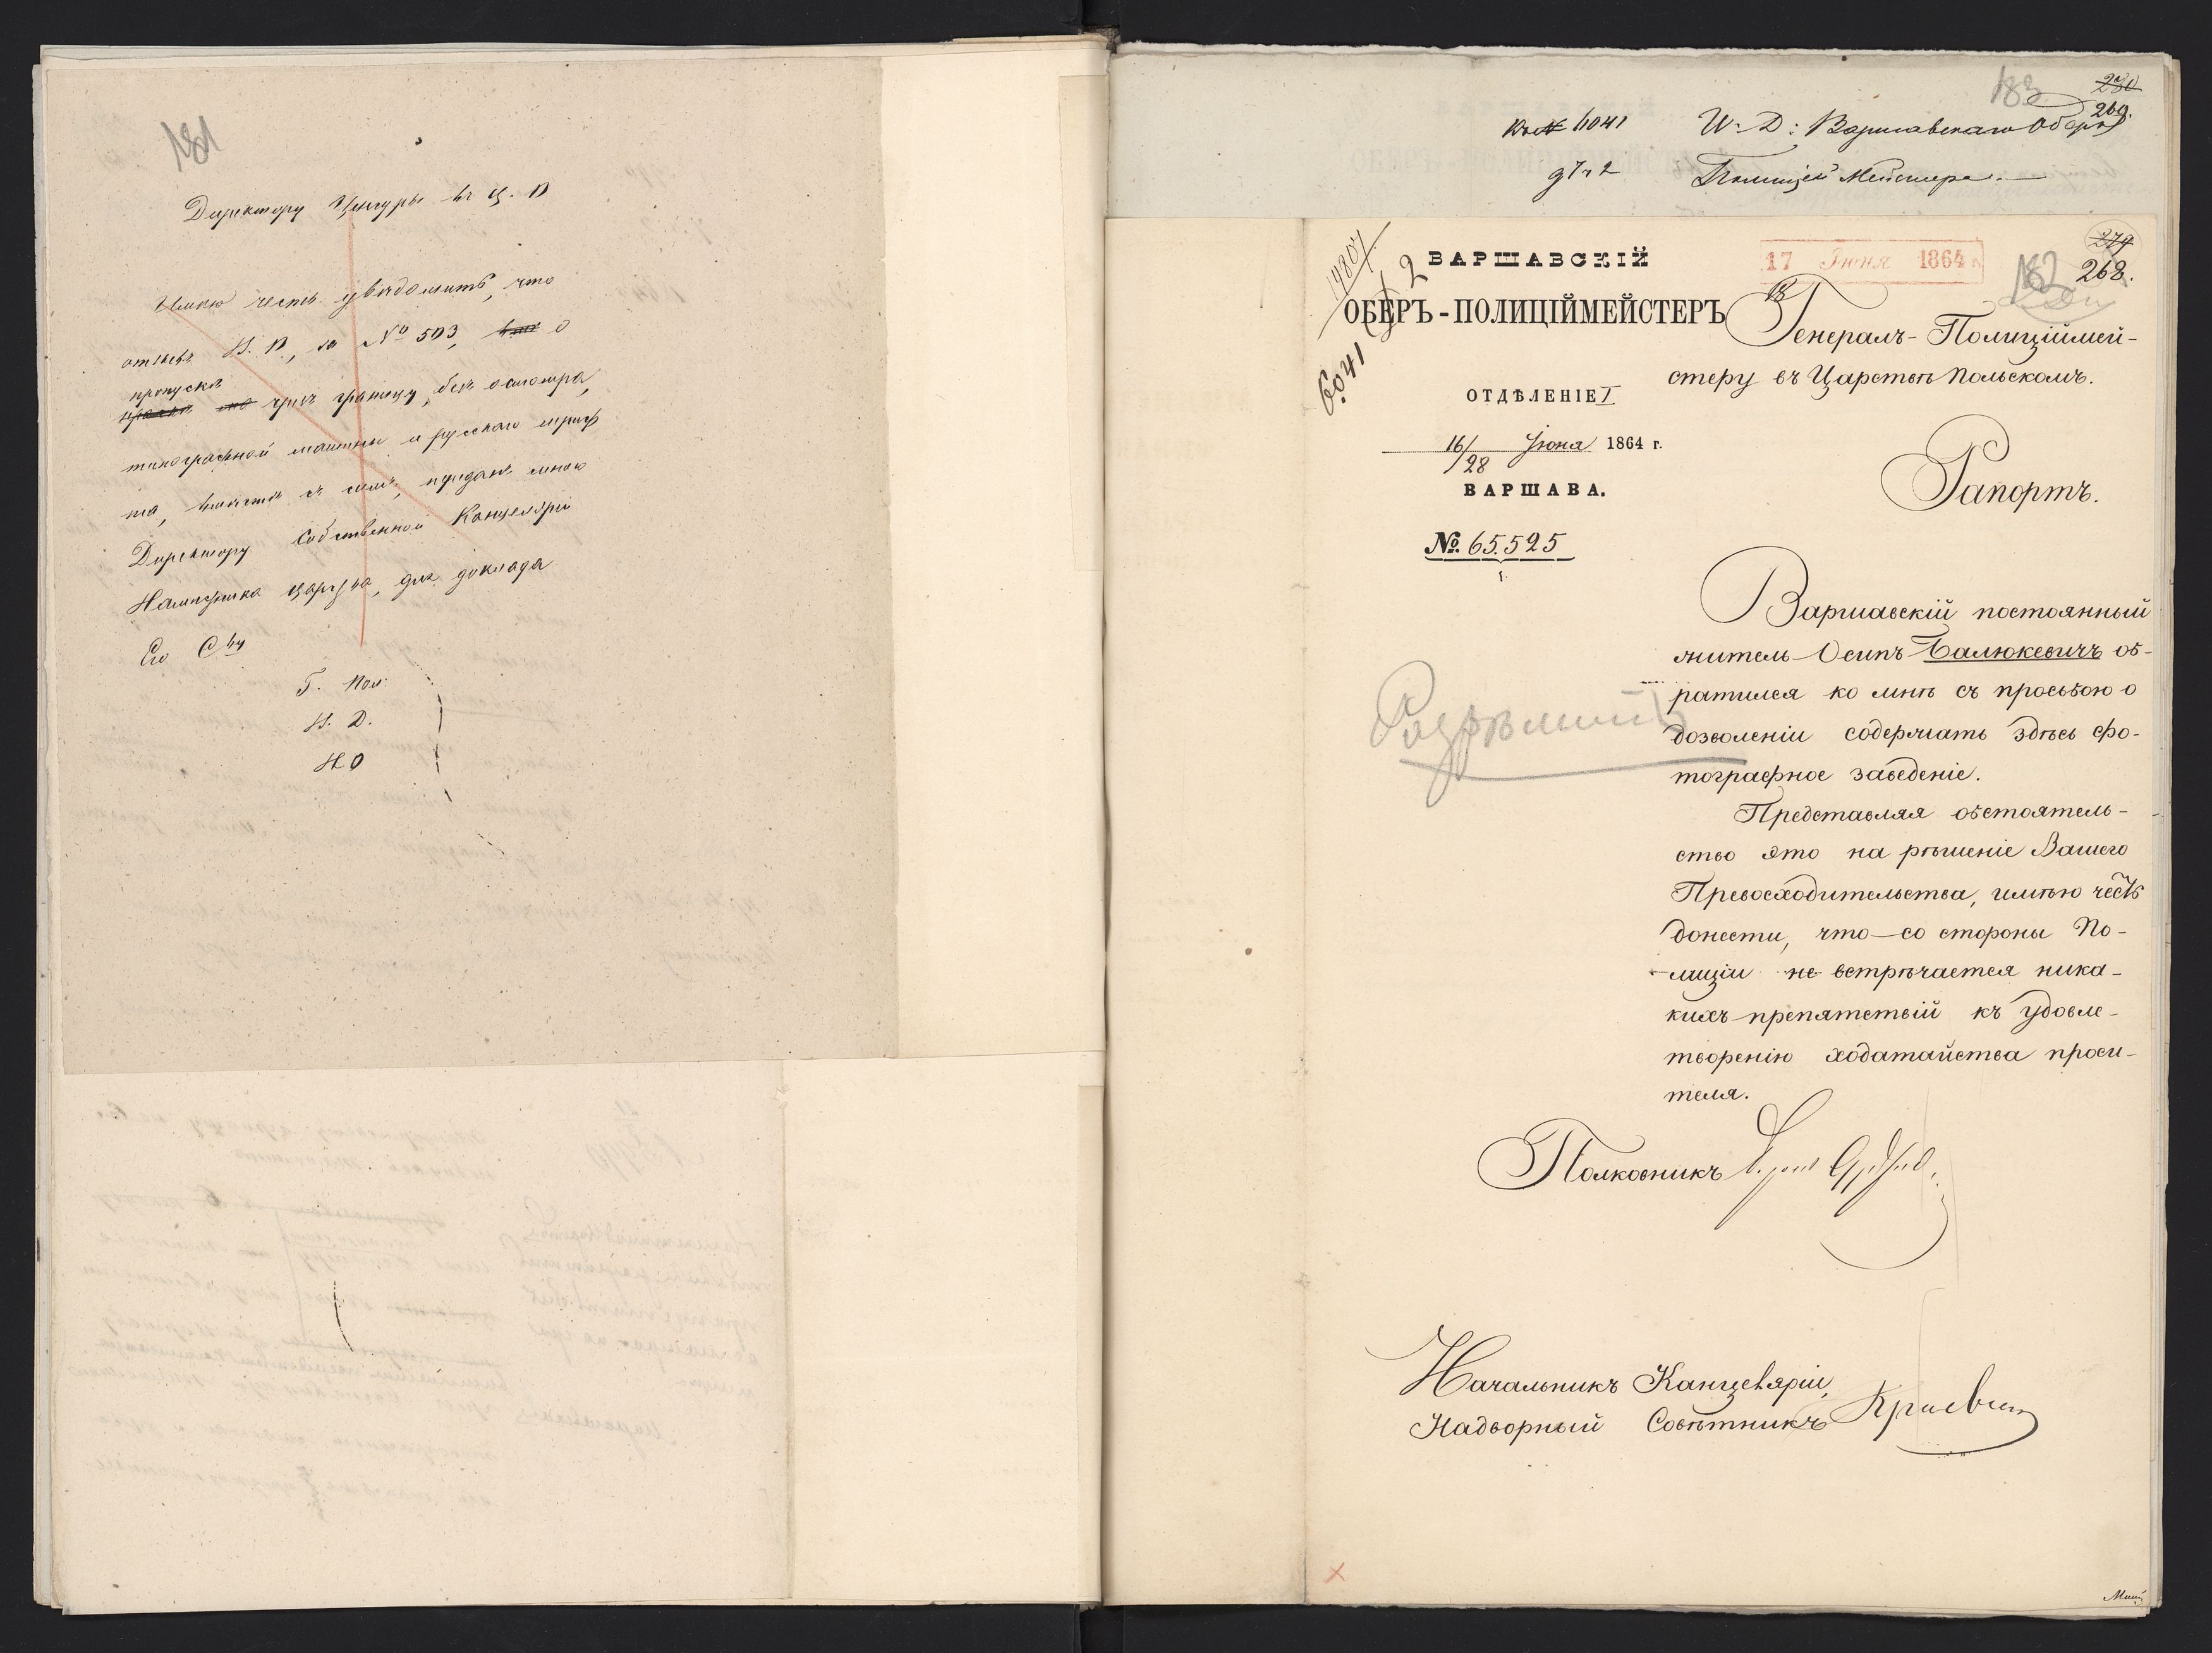 181
Директору Цензуры въ Ц. П
Имѣю честь увѣдомить, что
отзывъ В. П., за № 593, о
пропускѣ
чрезъ границу, безъ осмотра,
типографной машины и русскаго шриф
та, вмѣстѣ съ симъ, переданъ мною
Директору Собственной Канцеляріи
Намѣстника Царства, для доклада
Его С–ву
Г. Пол:
Н. Д.
Н. О
183
280
269.
Къ № 6041
И. Д: Варшавскаго Оберъ
Полицей Мейстера.
14807
6041
ВАРШАВСКІЙ
ОБЕРЪ-ПОЛИЦІЙМЕЙСТЕРЪ
ОТДѢЛЕНІЕ I
16/28 Іюня 1864 г.
ВАРШАВА.
№ 65.525
17 Іюня 1864
279
182
268.
Генералъ-Полиціймей-
стеру въ Царствѣ Польскомъ.
Рапортъ.
Варшавскій постоянный
житель Осипъ Балюкевичъ об-
ратился ко мнѣ съ просьбою о
дозволеніи содержать здѣсь фо-
тографное заведеніе.
Представляя обстоятель-
ство это на рѣшеніе Вашего
Превосходительства, имѣю честь
донести, что со стороны По-
лиціи не встрѣчается ника-
кихъ препятствій къ удовле-
творенію ходатайства проси-
теля.
Полковникъ
Начальникъ Канцеляріи,
Надворный Совѣтникъ